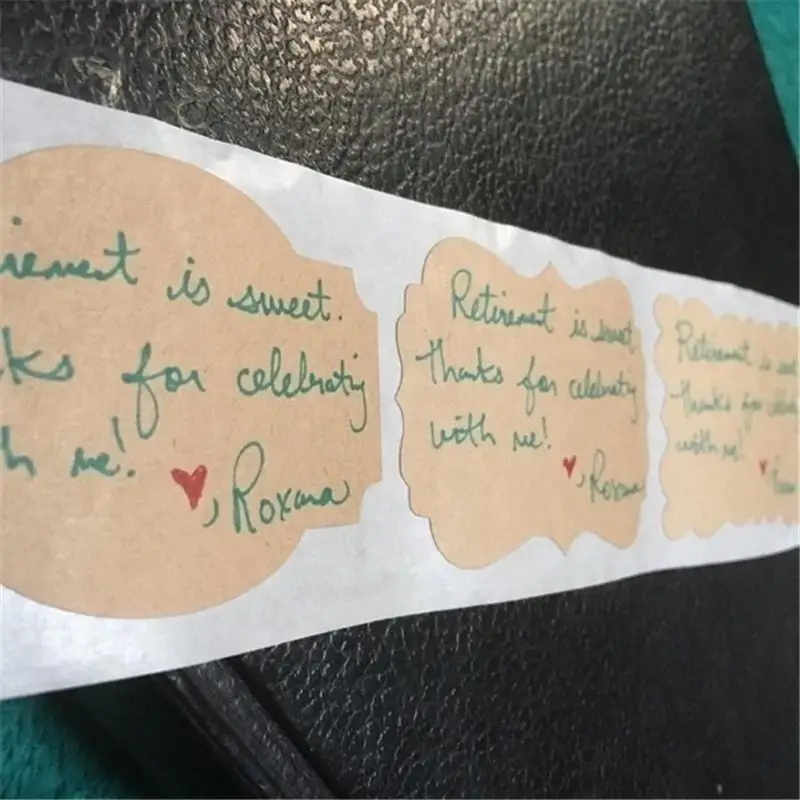 is sweet.
for celebrating
me!
, Roxana
Retirement is sweet
Thanks for celebrating
with me!
, Roxana
Retirement is
Thanks for
with me!